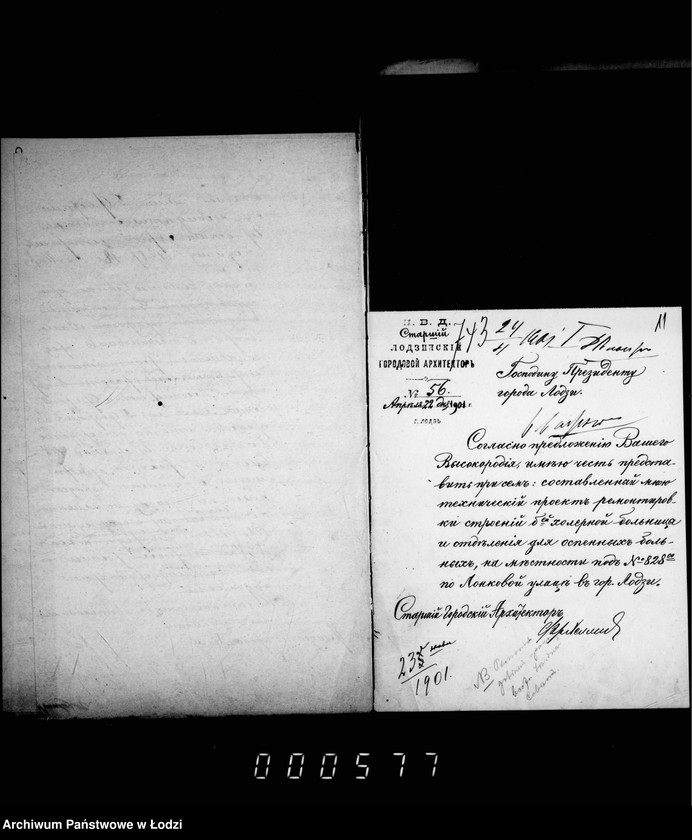 11
М. В. Д.
Старшій
ЛОДЗИНСКІЙ
ГОРОДОВОЙ АРХИТЕКТОРЪ
№ 56
Апрѣля 22 дня 1901 г.
Г. ЛОДЗЬ
743 24/4 1901 I
Господину Президенту
города Лодзи.
Согласно предложенію Вашего
Высокородія, имѣю честь предста-
вить при семъ: составленный мною
техническій проектъ ремонтиров-
ки строеній бой холерной больницы
и отдѣленія для оспенныхъ боль-
ныхъ, на мѣстности подъ № 828
по Лонковой улицѣ въ гор. Лодзи.
Старшій Городскій Архитекторъ
23
1901.
NB
000577
Archiwum Państwowe w Łodzi